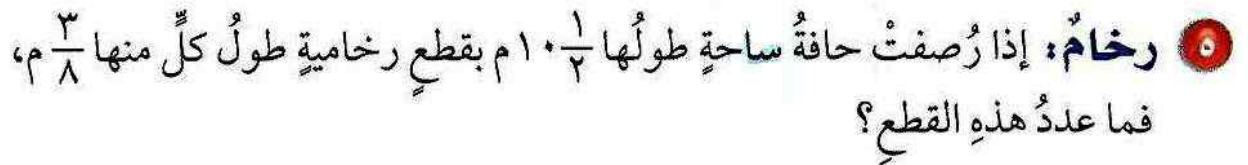 ٥ رخامٌ: إذا رُصفتْ حافةُ ساحةٍ طولُها ١٠ ١/٢ م بقطعٍ رخاميةٍ طولُ كلٍّ منها ٣/٨ م،
فما عددُ هذهِ القطعِ؟